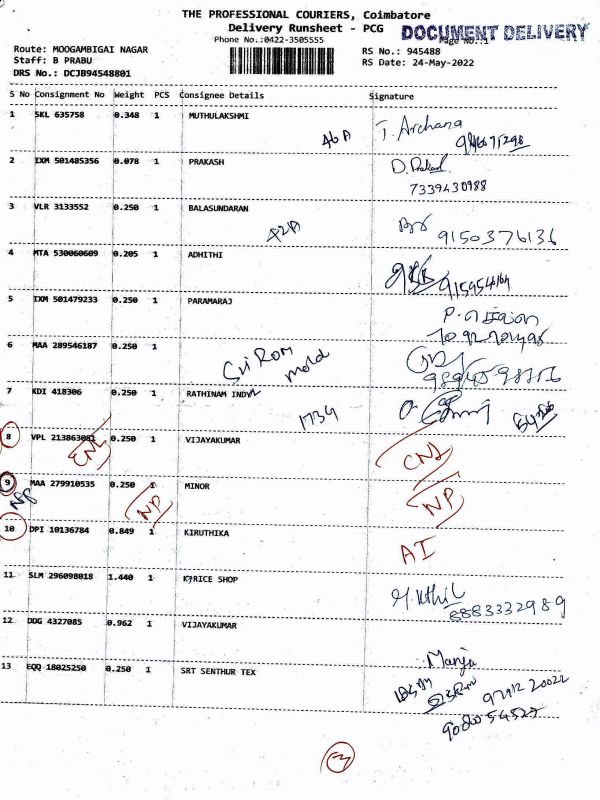 THE PROFESSIONAL COURIERS, Coimbatore
Delivery Runsheet - PCG
DOCUMENT DELIVERY
Phone No.:0422-3505555
Page No.:1
Route: MOOGAMBIGAI NAGAR
RS No.: 945488
Staff: B PRABU
RS Date: 24-May-2022
DRS No.: DCJB94548801
S No Consignment No Weight PCS Consignee Details Signature
1 SKL 635758 0.348 1 MUTHULAKSHMI
46A T. Archana
2 IXM 501485356 0.078 1 PRAKASH D. Prakash
7339430988
3 VLR 3133552 0.250 1 BALASUNDARAN
42A 9150376136
4 MTA 530060609 0.205 1 ADHITHI
5 IXM 501479233 0.250 1 PARAMARAJ
6 MAA 289546187 0.250 1
Sri Rom
mold
7 KDI 418306 0.250 1 RATHINAM INDY
1734
8 VPL 213863081 0.250 1 VIJAYAKUMAR
CNL CNL
9 MAA 279910535 0.250 1 MINOR
NP NP NP
10 DPI 10136784 0.849 1 KIRUTHIKA
AI
11 SLM 296098018 1.440 1 K7RICE SHOP
8883332989
12 DDG 4327085 0.962 1 VIJAYAKUMAR
13 EQQ 18025250 0.250 1 SRT SENTHUR TEX
Manju
3